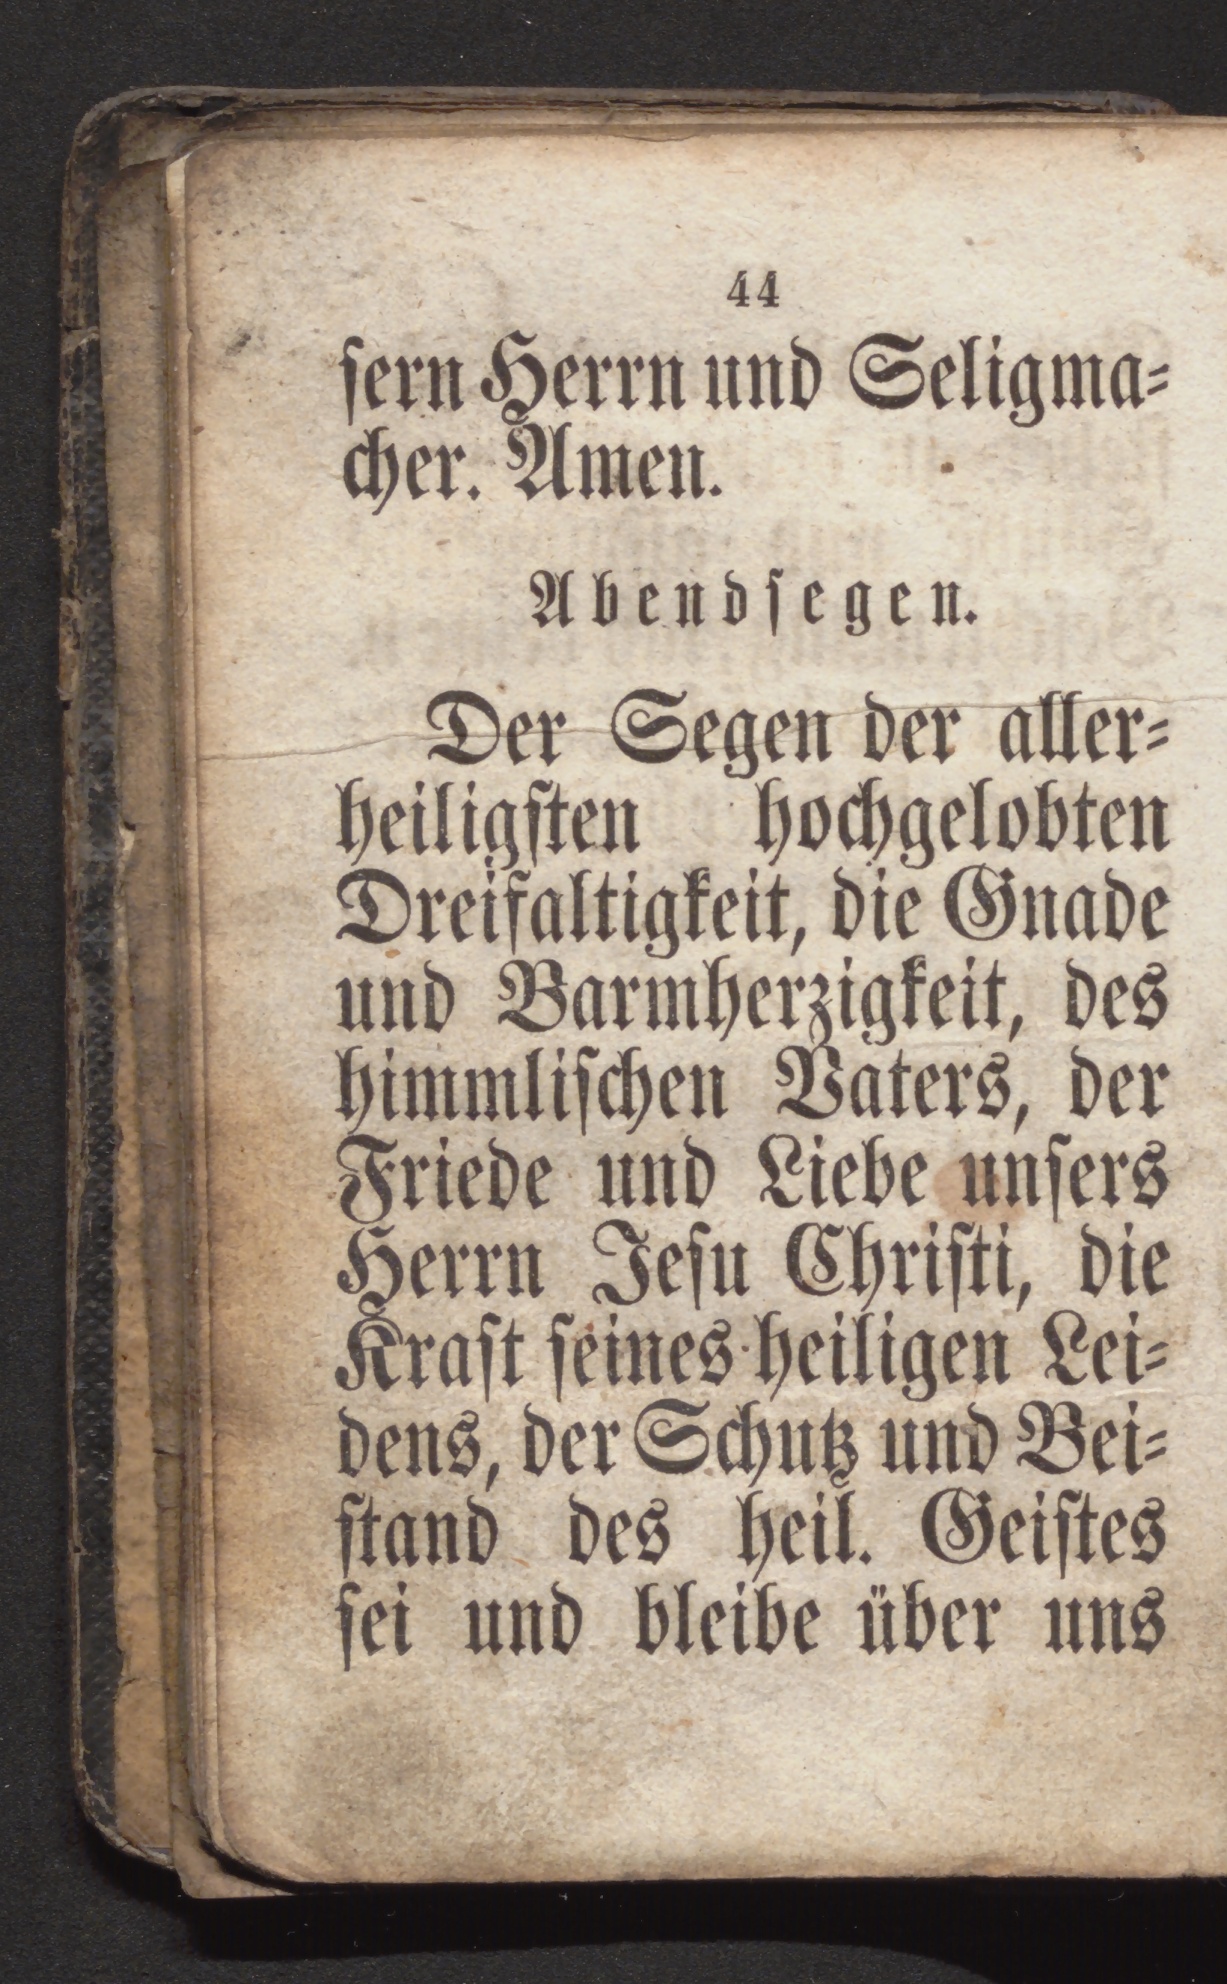 44
ſern Herrn und Seligma⸗
cher. Amen.
Abendſegen.
Der Segen der aller⸗
heiligſten hochgelobten
Dreifaltigkeit, die Gnade
und Barmherzigkeit, des
himmliſchen Vaters, der
Friede und Liebe unſers
Herrn Jeſu Chriſti, die
Kraft ſeines heiligen Lei⸗
dens, der Schutz und Bei⸗
ſtand des heil. Geiſtes
ſei und bleibe über uns